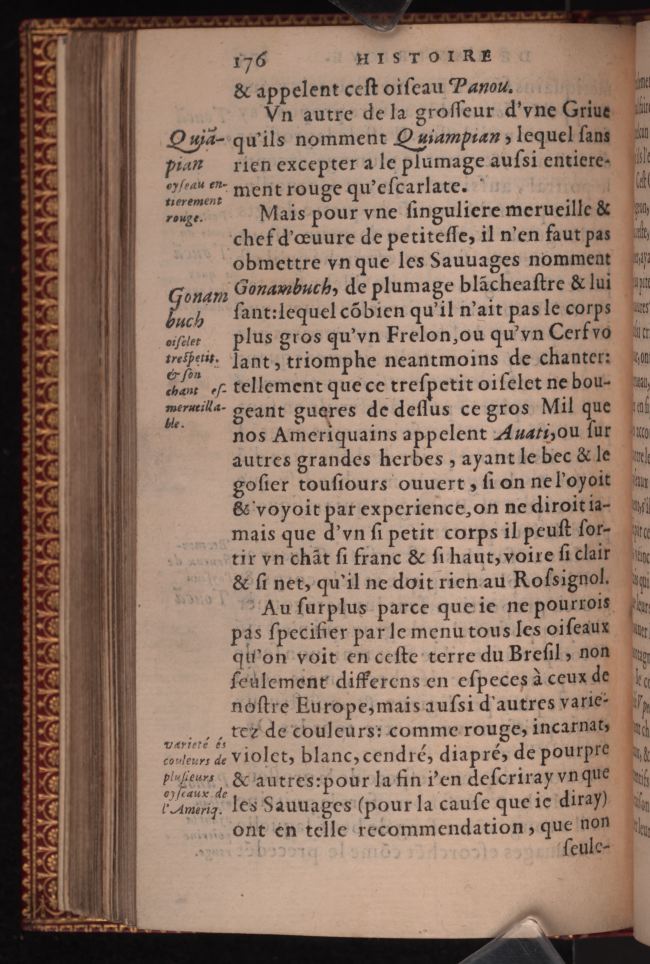 176 HISTOIRE
& appelent cest oiſeau Panou.
Vn autre de la groſſeur d'vne Griue
qu'ils nomment Quiampian, lequel ſans
rien excepter a le plumage auſsi entiere-
ment rouge qu'eſcarlate.
Mais pour vne ſinguliere merueille &
chef d'œuure de petiteſſe, il n'en faut pas
obmettre vn que les Sauuages nomment
Gonambuch, de plumage blãcheaſtre & lui
ſant: lequel cõbien qu'il n'ait pas le corps
plus gros qu'vn Frelon, ou qu'vn Cerf vo
lant, triomphe neantmoins de chanter:
tellement que ce treſpetit oiſelet ne bou-
geant gueres de deſſus ce gros Mil que
nos Ameriquains appelent Auati, ou ſur
autres grandes herbes, ayant le bec & le
goſier touſiours ouuert, ſi on ne l'oyoit
& voyoit par experience, on ne diroit ia-
mais que d'vn ſi petit corps il peuſt ſor-
tir vn chãt ſi franc & ſi haut, voire ſi clair
& ſi net, qu'il ne doit rien au Roſsignol.
Au ſurplus parce que ie ne pourrois
pas ſpecifier par le menu tous les oiſeaux
qu'on voit en ceſte terre du Breſil, non
ſeulement differens en eſpeces à ceux de
noſtre Europe, mais auſsi d'autres varie-
tez de couleurs: comme rouge, incarnat,
violet, blanc, cendré, diapré, de pourpre
& autres: pour la fin i'en deſcriray vn que
les Sauuages (pour la cauſe que ie diray)
ont en telle recommendation, que non
ſeule-
Quiã-
pian
oyſeau en-
tierement
rouge.
Gonam
buch
oiſelet
treſpetit.
& ſon
chant eſ-
merueilla-
ble.
varieté és
couleurs de
pluſieurs
oyſeaux de
l'Ameriq.